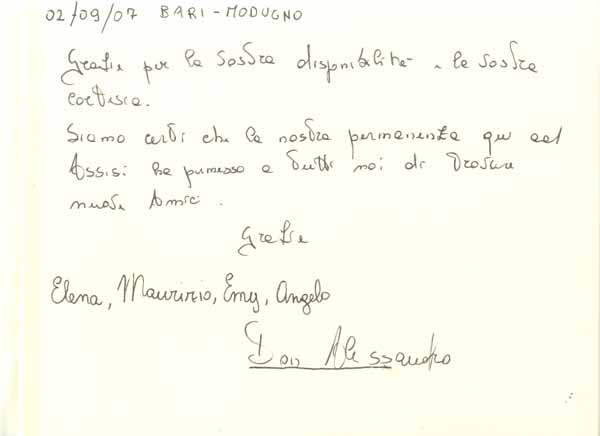 02/09/07 BARI - MODUGNO
Grazie per la vostra disponibilità e la vostra
cortesia.
Siamo certi che la nostra permanenza qui ad
Assisi ha permesso a tutti noi di trovare
nuovi Amici.
Grazie
Elena, Maurizio, Emy, Angelo
Don Alessandro